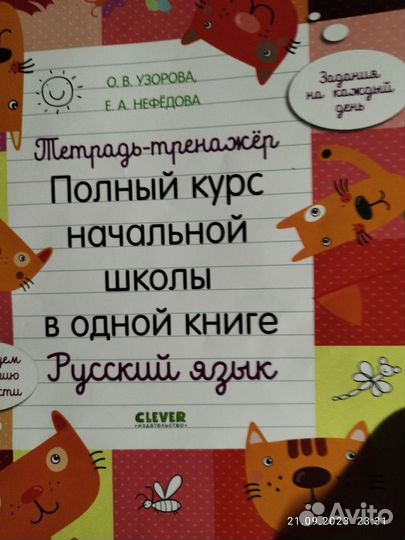 О. В. УЗОРОВА,
Е. А. НЕФЁДОВА
Задания
на каждый
день
Тетрадь-тренажёр
Полный курс
начальной
школы
в одной книге
Русский язык
CLEVER
ИЗДАТЕЛЬСТВО
21.09.2023 23:31
Avito